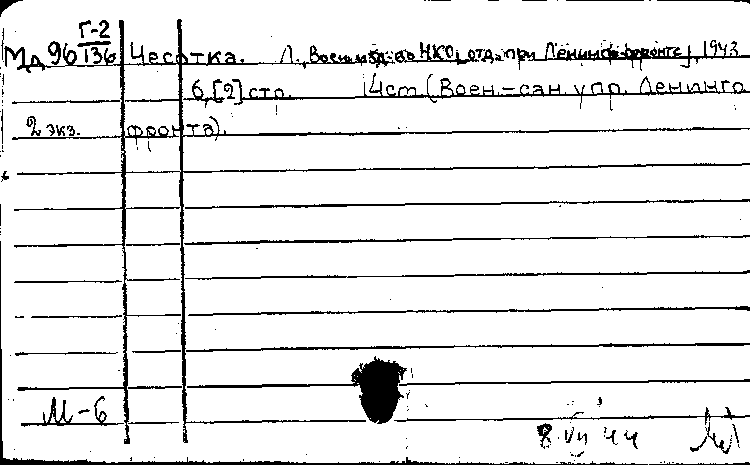 Г-2
Мд 96 136 Чесотка. Л., Воен. изд-во НКО, отд. при Ленингр. фронте, 1943
6, [2] стр. 14 cm (Воен.-сан. упр. Ленингр.
2 экз. фронта).
М-6
8 VII 44